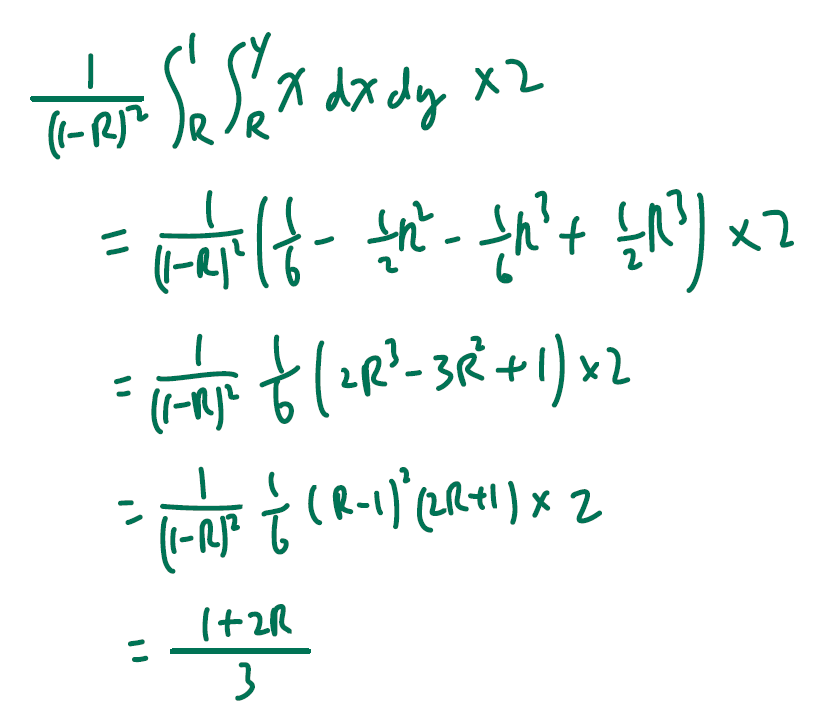 \frac{1}{(1-R)^2} \int_R^1 \int_R^y x \, dx \, dy \times 2
= \frac{1}{(1-R)^2} \left( \frac{1}{6} - \frac{1}{2}R^2 - \frac{1}{6}R^3 + \frac{1}{2}R^3 \right) \times 2
= \frac{1}{(1-R)^2} \frac{1}{6} (2R^3 - 3R^2 + 1) \times 2
= \frac{1}{(1-R)^2} \frac{1}{6} (R-1)^2 (2R+1) \times 2
= \frac{1+2R}{3}